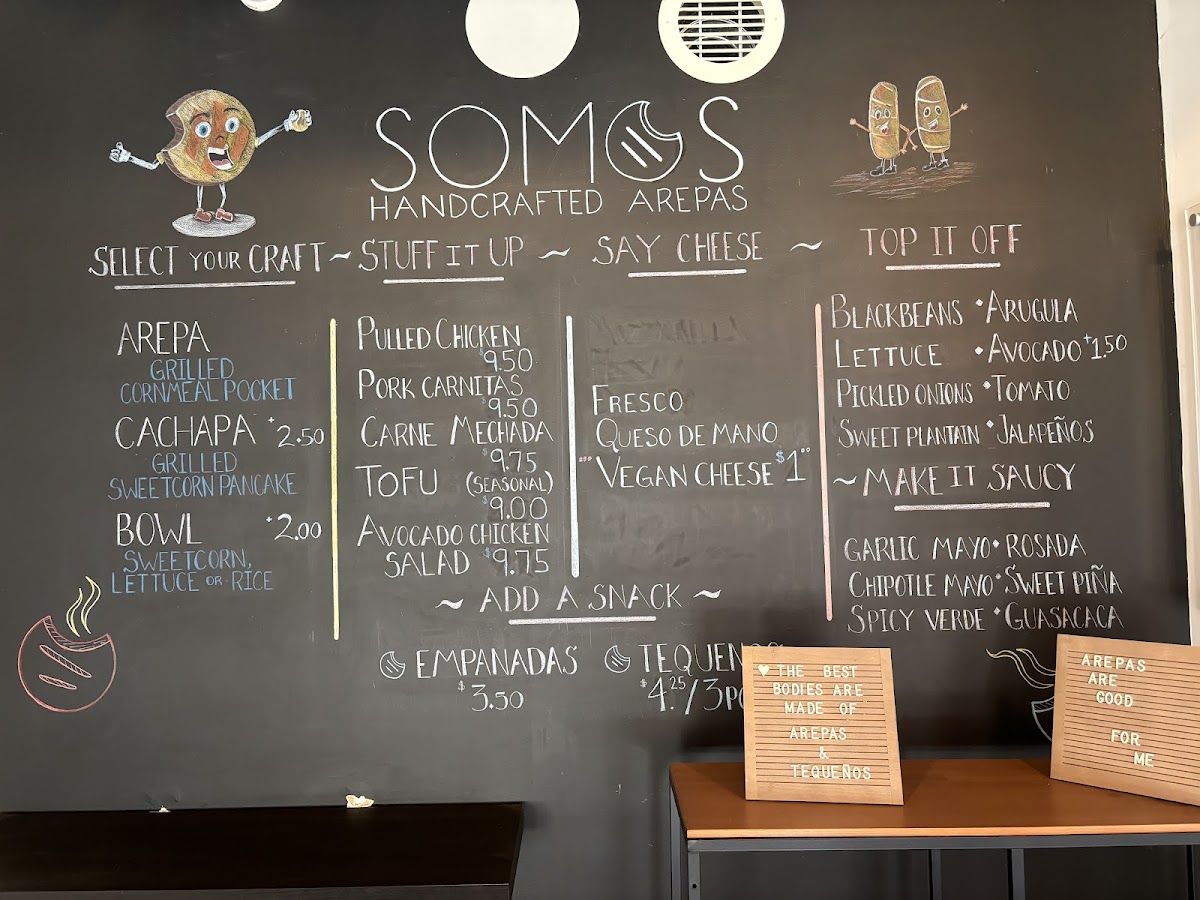 SOMOS
HANDCRAFTED AREPAS
SELECT YOUR CRAFT ~ STUFF IT UP ~ SAY CHEESE ~ TOP IT OFF
AREPA
GRILLED
CORNMEAL POCKET
CACHAPA +2.50
GRILLED
SWEETCORN PANCAKE
BOWL +2.00
SWEETCORN,
LETTUCE OR RICE
PULLED CHICKEN
$9.50
PORK CARNITAS
$9.50
CARNE MECHADA
$9.75
TOFU (SEASONAL)
$9.00
AVOCADO CHICKEN
SALAD $9.75
FRESCO
QUESO DE MANO
VEGAN CHEESE $1
BLACKBEANS • ARUGULA
LETTUCE • AVOCADO +1.50
PICKLED ONIONS • TOMATO
SWEET PLANTAIN • JALAPEÑOS
~ MAKE IT SAUCY
GARLIC MAYO • ROSADA
CHIPOTLE MAYO • SWEET PIÑA
SPICY VERDE • GUASACACA
~ ADD A SNACK ~
EMPANADAS
$3.50
$4.25/3
♥ THE BEST
BODIES ARE
MADE OF
AREPAS
&
TEQUEÑOS
AREPAS
ARE
GOOD
FOR
ME